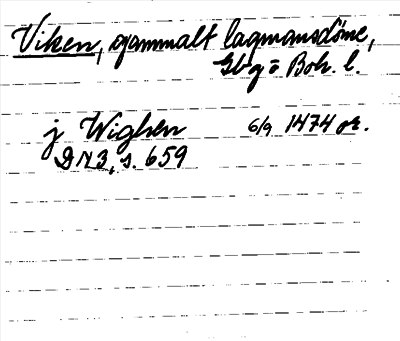 Viken, gammalt lagmansdöme,
Gbg o Boh. l.
j Wighen 6/9 1474 or.
DN 3, s. 659